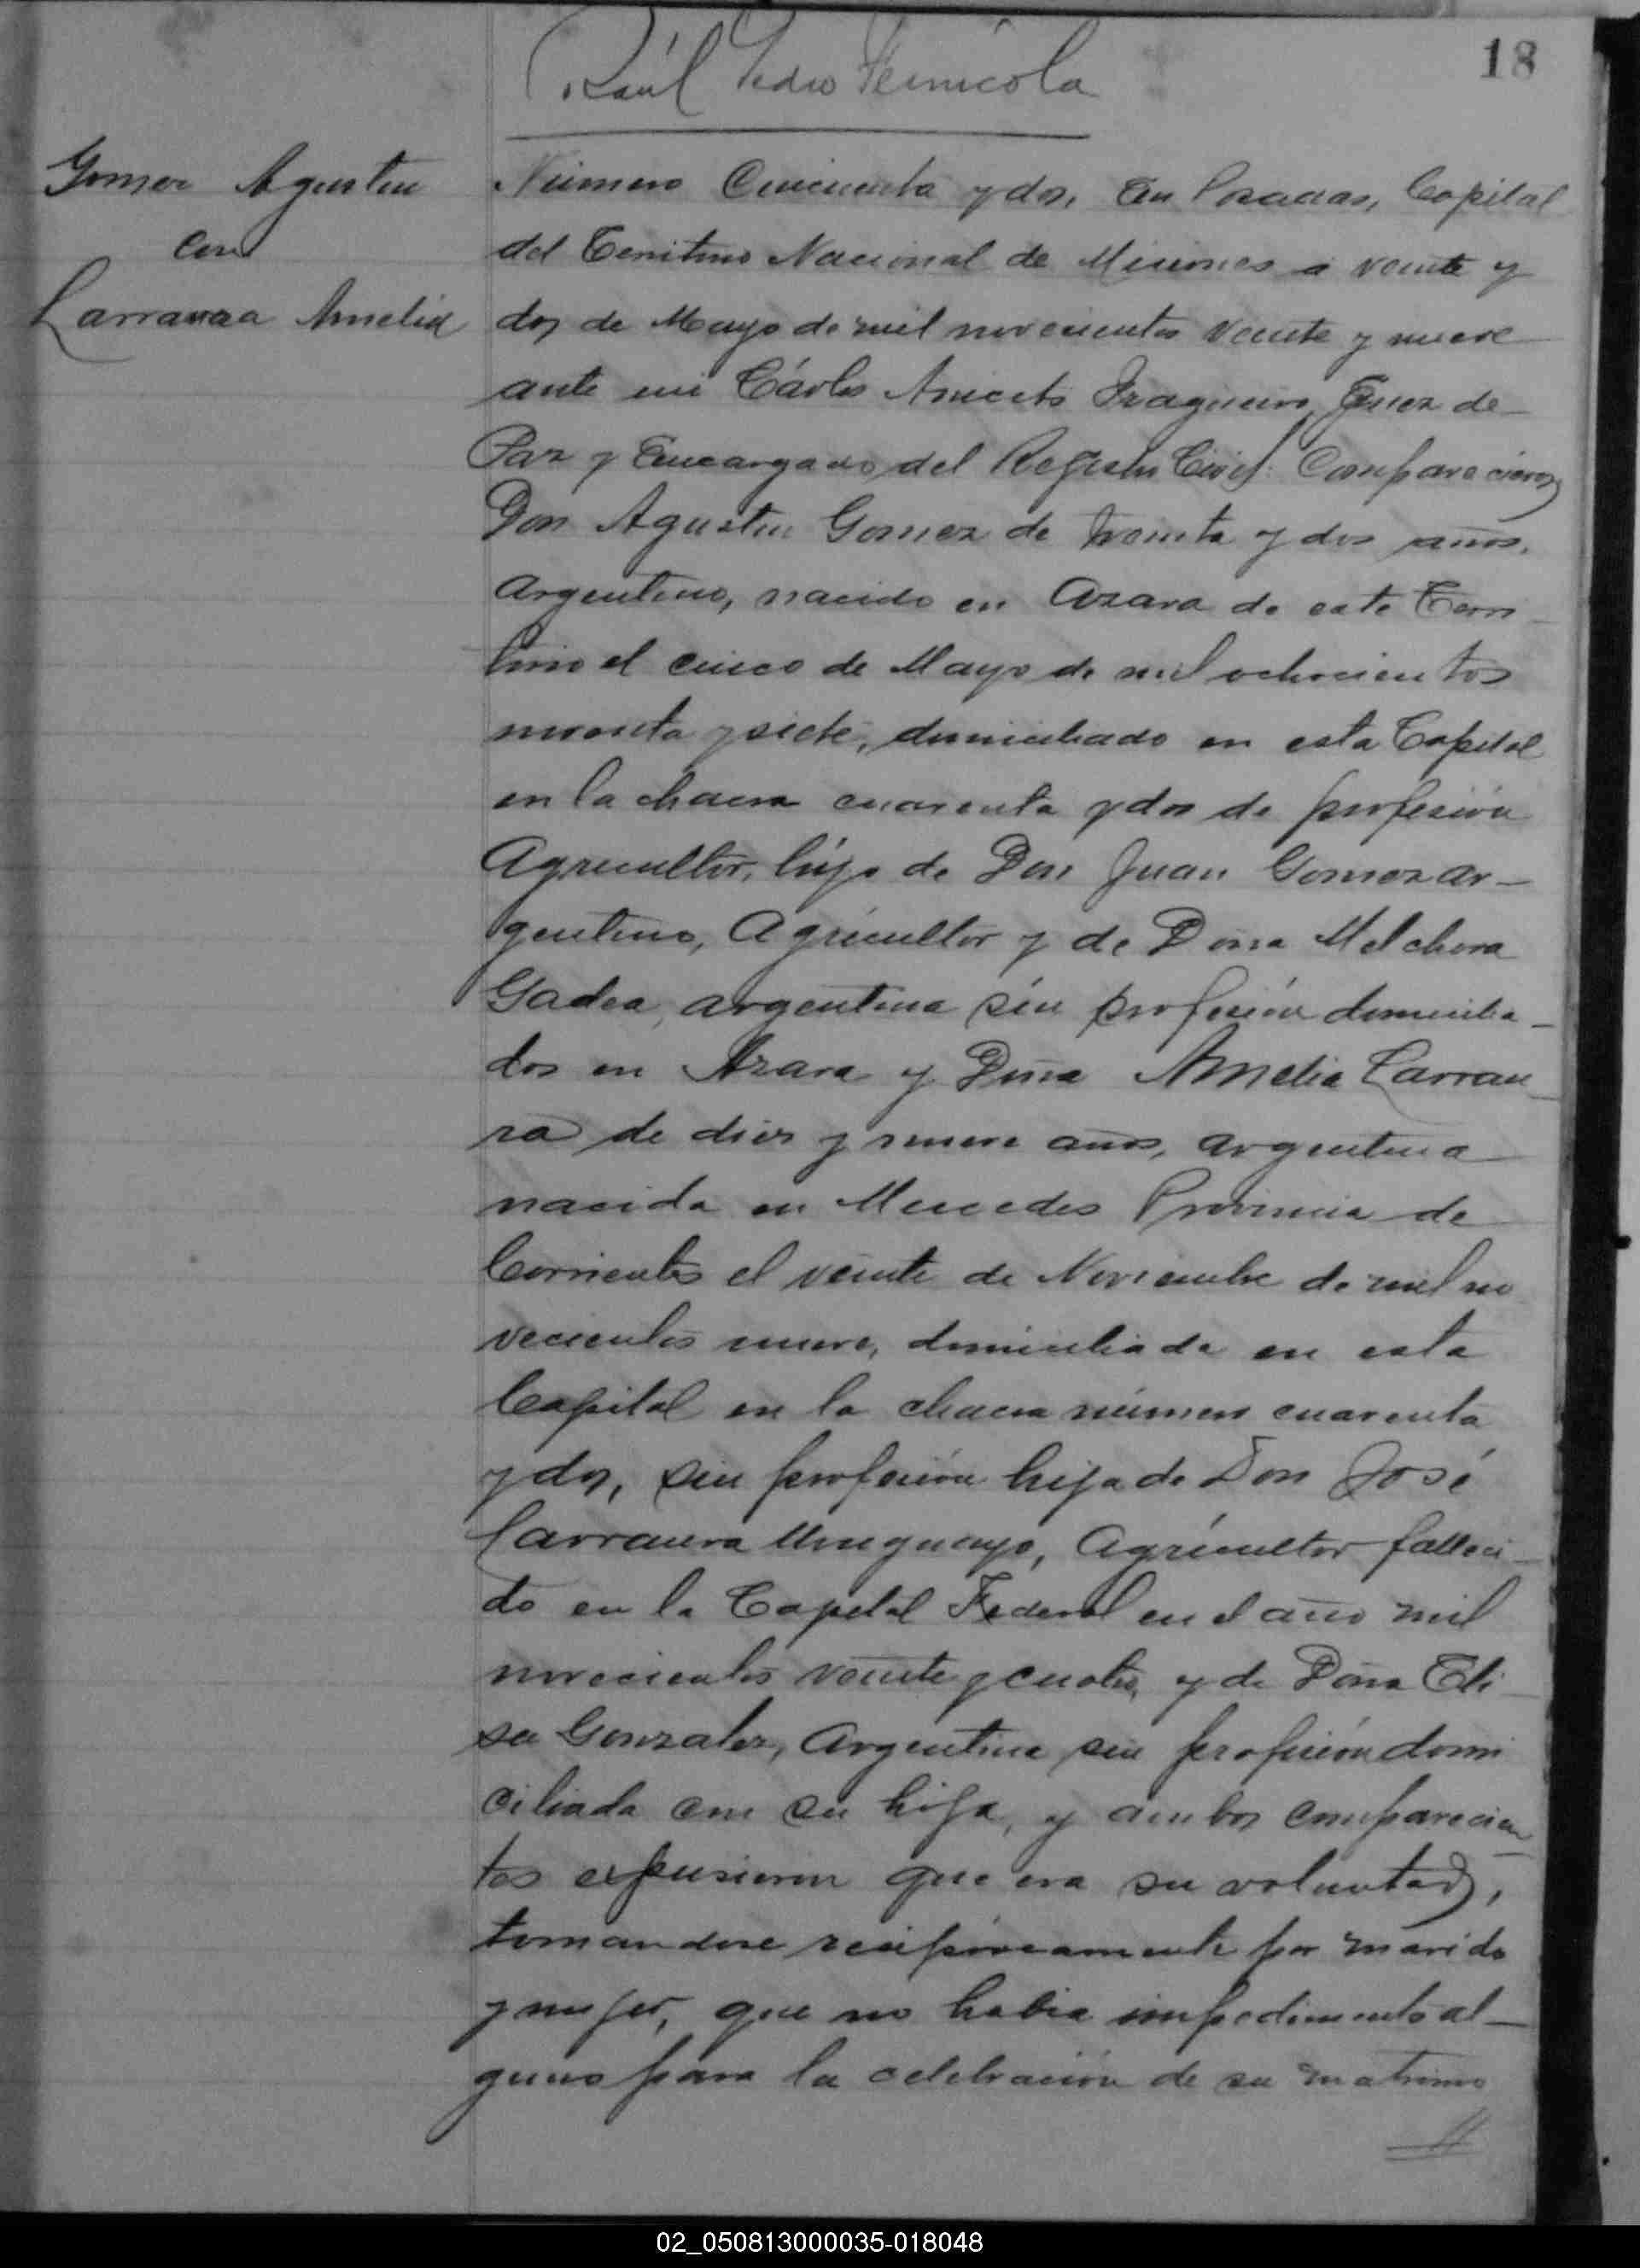 18
Raúl Pedro Pernicola
Gomez Agustin
con
Larranza Amelia
Número Cincuenta y dos, En Posadas, Capital
del Territorio Nacional de Misiones a veinte y
dos de Mayo de mil novecientos veinte y nueve
ante mi Cárlos Aniceto Fragueiro, Juez de
Paz y Encargado del Registro Civil: Comparecieron
Don Agustin Gomez de treinta y dos años,
argentino, nacido en Azara de este Terri
torio el cinco de Mayo de mil ochocientos
noventa y siete, domiciliado en esta Capital
en la chacra cuarenta y dos de profesión
Agricultor, hijo de Don Juan Gomez ar-
gentino, Agricultor y de Doña Melchora
Gadea, argentina sin profesión domicilia-
dos en Azara y Doña Amelia Larran-
za de diez y nueve años, argentina
nacida en Mercedes Provincia de
Corrientes el veinte de Noviembre de mil no
vecientos nueve, domiciliada en esta
Capital en la chacra número cuarenta
y dos, sin profesión hija de Don José
Larranza Uruguayo, Agricultor falleci-
do en la Capital Federal en el año mil
novecientos veinte y cuatro, y de Doña Eli-
sa Gonzalez, Argentina sin profesión domi
ciliada con su hija, y ambos comparecien-
tes expusieron que era su voluntad,
tomandose reciprócamente por marido
y mujer, que no habia impedimento al-
guno para la celebración de su matrimo
02_050813000035-018048